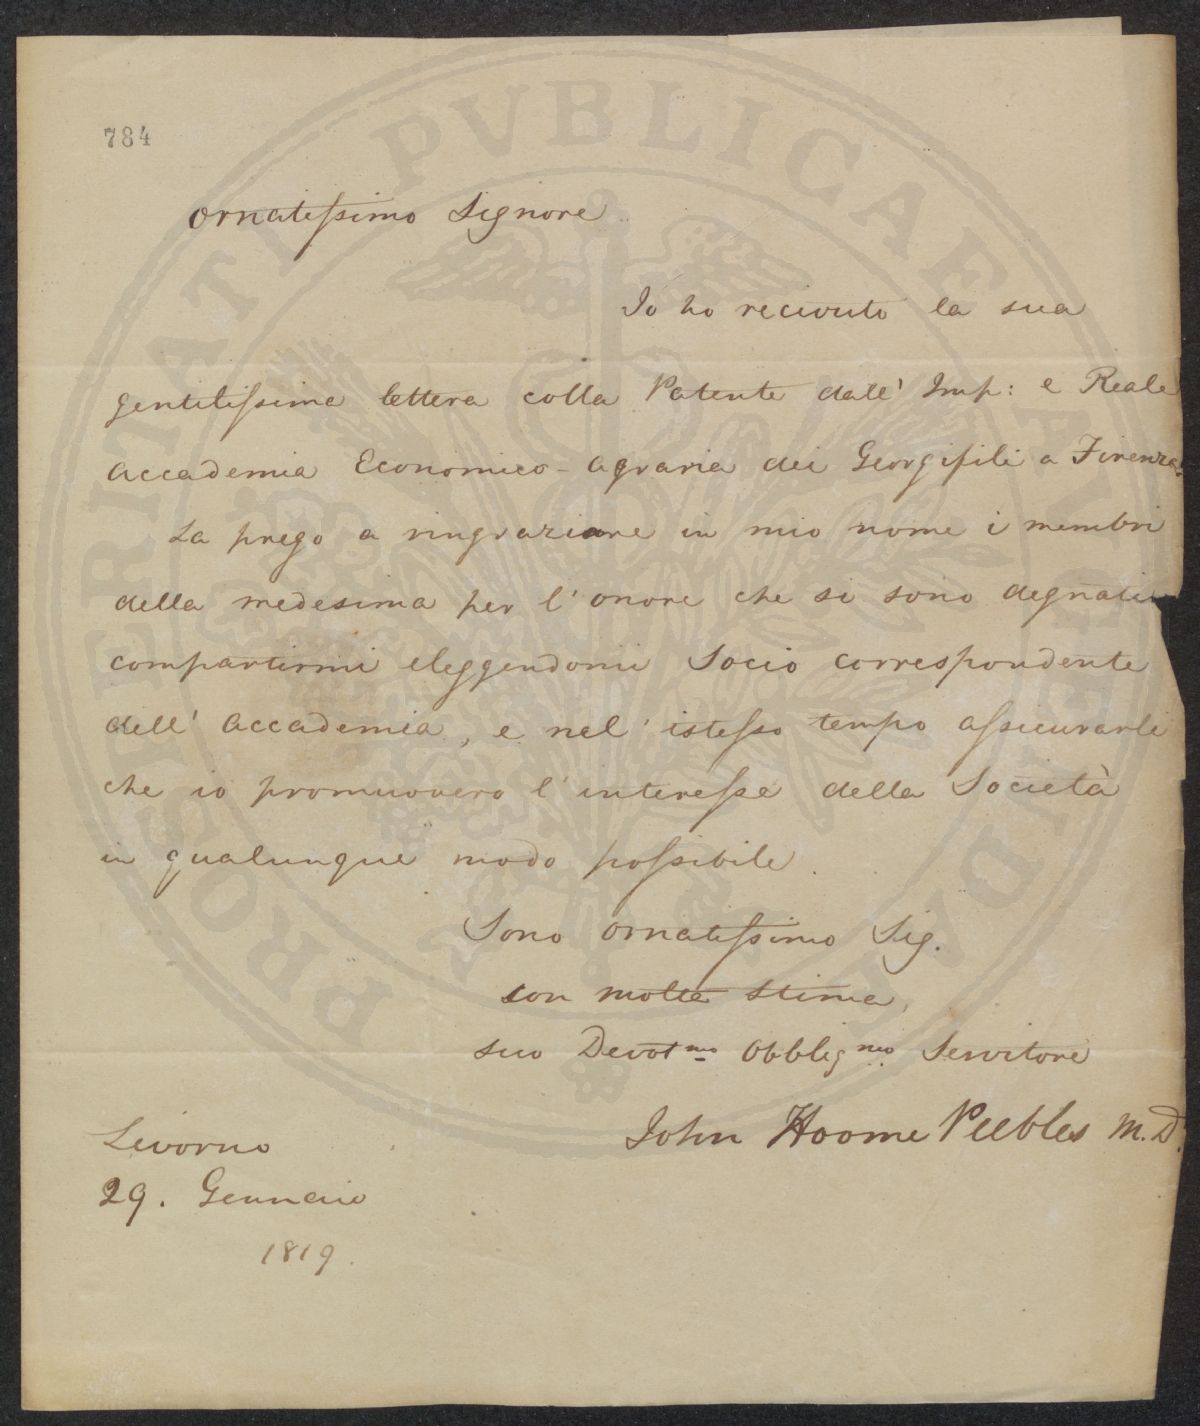 784
Ornatissimo Signore
Io ho recivuto la sua
gentilissima lettera colla Patente dall' Imp: e Reale
Accademia Economico-Agraria dei Georgifili a Firenze.
La prego a ringraziare in mio nome i membri
della medesima per l'onore che si sono degnati
compartirmi eleggendomi Socio correspondente
dell' Accademia, e nel' istesso tempo assicurarli
che io promuovero l'interesse della Società
in qualunque modo possibile.
Sono Ornatissimo Sig.
con molta stima,
suo Devotmo Obbligmo Servitore
John Hoome Peebles M.D.
Livorno
29. Gennaio
1819.
PROSPERITATI PVBLICAE AVGENDAE